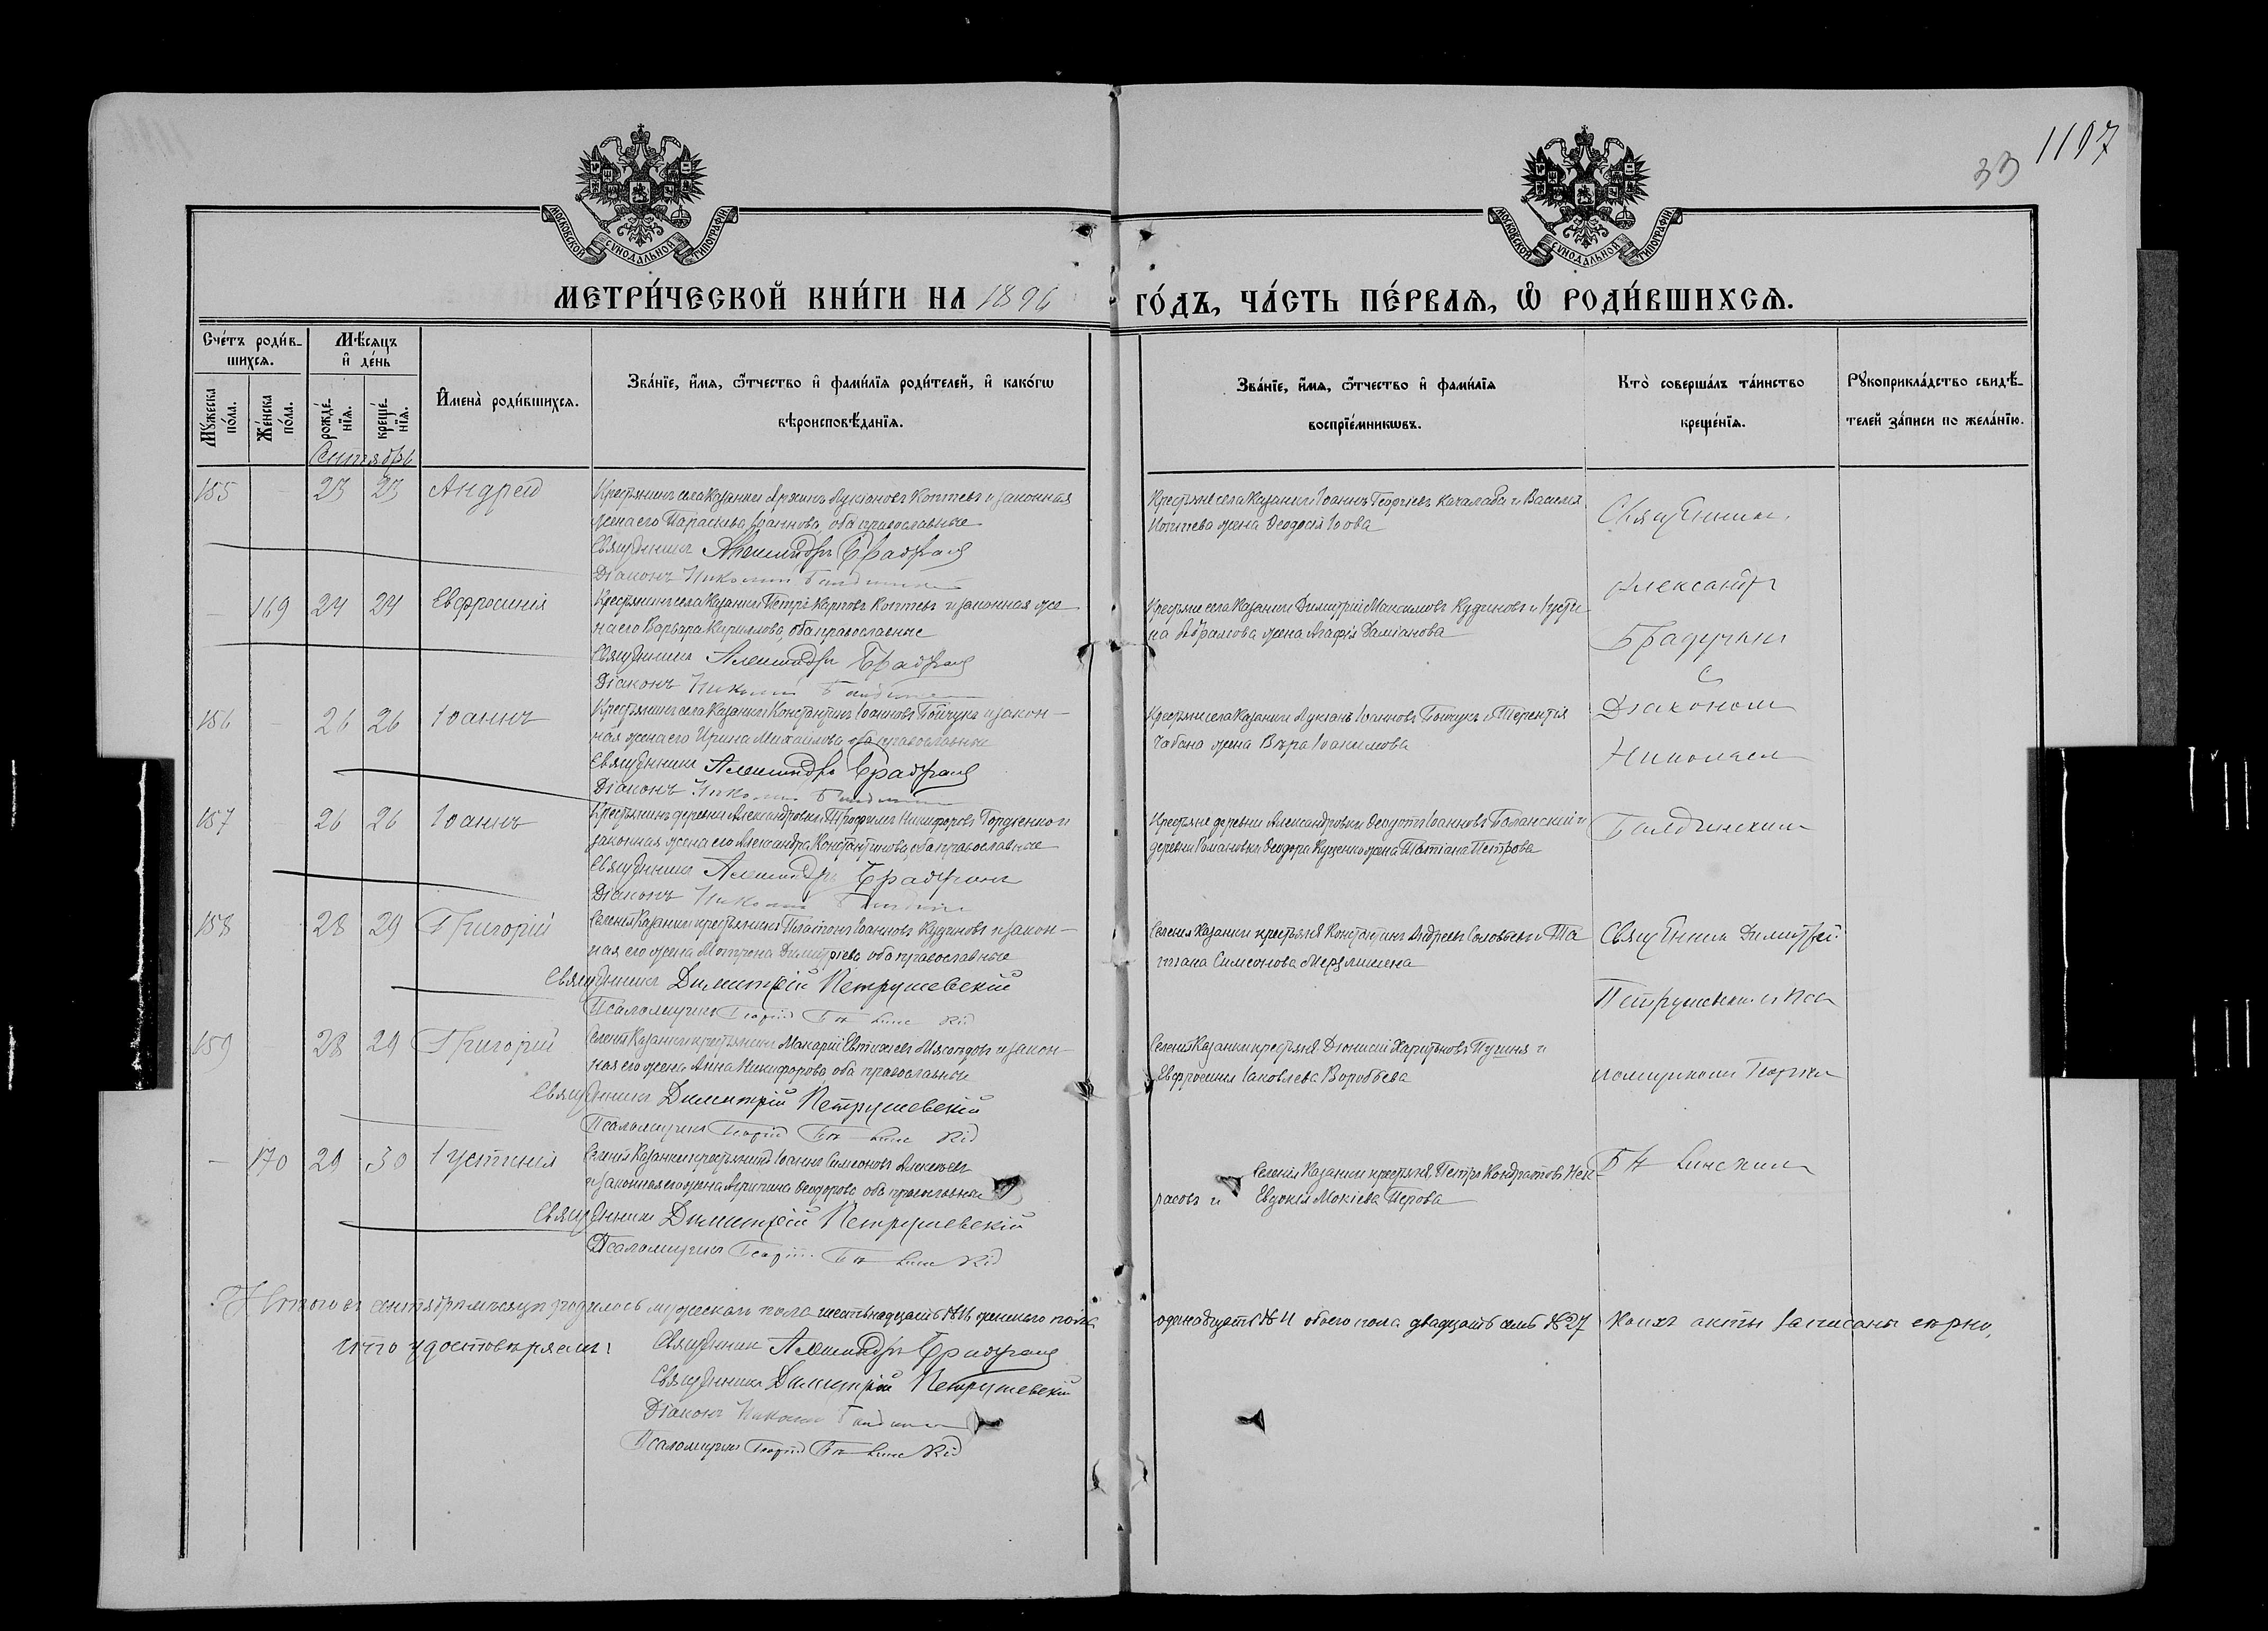 1107
33
МОСКОВСКОЙ СѴНОДАЛЬНОЙ ТИПОГРАФІИ
МОСКОВСКОЙ СѴНОДАЛЬНОЙ ТИПОГРАФІИ
МЕТРИ́ЧЕСКОЙ КНИ́ГИ НА 1896 ГО́ДЪ, ЧА́СТЬ ПЕ́РВАѦ, Ѡ҆ РОДИ́ВШИХСѦ.
Сче́тъ роди́в-
шихсѧ.
Мѣ́сѧцъ
и҆ де́нь
Мꙋ́жеска по́ла.
Же́нска по́ла.
рожде́-нїѧ.
креще́-нїѧ.
И҆мена̀ роди́вшихсѧ.
Зва́нїе, и҆́мѧ, ѻ҆́тчество и҆ фами́лїѧ роди́телей, и҆ како́гѡ
вѣроисповѣ́данїѧ.
Зва́нїе, и҆́мѧ, ѻ҆́тчество и҆ фами́лїѧ
воспрїе́мникѡвъ.
Кто̀ соверша́лъ та́инство
креще́нїѧ.
Рꙋкоприкла́дство свидѣ́-
телей за́писи по жела́нїю.
Сентябрь
155 - 23 23 Андрей
Крестьянинъ села Казанки Лукіановъ Коптевъ и законная
жена его Параскева Іоаннова, оба православные
Священникъ Александръ Брадучанъ
Діаконъ Николай
Крестьяне села Казанки Іоаннъ Георгіевъ Качалаба и Василія
Коптева жена Ѳеодосія Іова
Священникъ
- 169 24 24 Евфросинія
Крестьянинъ села Казанки Петръ Карповъ Коптевъ и законная же
на его Варвара Кириллова, оба православные
Священникъ Александръ Брадучанъ
Діаконъ Николай
Крестьяне села Казанки Димитрій Максимовъ Кудиновъ и Іусти
на Абрамова жена Агафія Даміанова
Александръ
Брадучанъ
с
156 - 26 26 Іоаннъ
Крестьянинъ села Казанки Константинъ Іоанновъ Бойчукъ и закон-
ная жена его Ирина Михаилова оба православные
Священникъ Александръ Брадучанъ
Діаконъ Николай
Крестьяне села Казанки Лукіанъ Іоанновъ Бойчукъ и Терентія
Чабана жена Вѣра Іоакимова
Діакономъ
Николаемъ
157 - 26 26 Іоаннъ
Крестьянинъ деревни Александровки Трофимъ Никифоровъ Гордіенко и
законная жена его Александра Константинова, оба православные
Священникъ Александръ Брадучанъ
Діаконъ Николай
Крестьяне деревни Александровки Іоанновъ Паланскій и
деревни Романовки Ѳеодора Куценко жена Татіана Петрова
158 28 29 Григорій
Селенія Казанки крестьянинъ Платонъ Іоанновъ Кудиновъ и закон-
ная его жена Матрона Димитріева оба православные
Священникъ Димитрій Петрушевскій
Псаломщикъ Георгій
Селенія Казанки крестьяне Константинъ Андреевъ Соловьевъ и Та
тіана Симеонова
Священникъ Димитрій
Петрушевскій и Пса
159 28 29 Григорій
Селенія Казанки крестьянинъ Макарій Евтихіевъ Мясоѣдовъ и закон-
ная его жена Анна Никифорова оба православные
Священникъ Димитрій Петрушевскій
Псаломщикъ Георгій
Селенія Казанки крестьяне Діонисій Харитоновъ Пушня и
Евфросинія Іаковлева Воробьева
ломщикомъ Георгіемъ
- 170 29 30 Іустинія
Селенія Казанки крестьянинъ Іоаннъ Симеоновъ Алексѣевъ
и законная его жена Агрипина Ѳеодорова оба православные
Священникъ Димитрій Петрушевскій
Псаломщикъ Георгій
Селенія Казанки крестьяне, Петръ Кондратовъ Нек-
расовъ и Евдокія Мокіева Перова
Итого въ сентябрѣ мѣсяцѣ родилось мужескаго пола шестьнадцать №16, женскаго пола
одинадцать №11 обоего пола двадцать семь №27 Коихъ акты записаны вѣрно,
что удостовѣряемъ:
Священникъ Александръ Брадучанъ
Священникъ Димитрій Петрушевскій
Діаконъ Николай
Псаломщикъ Георгій